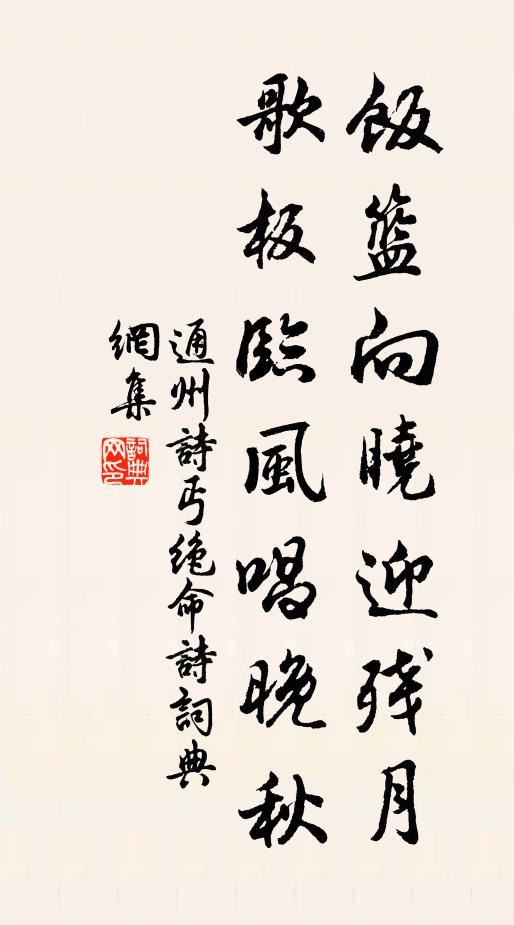 飯籃向曉迎残月
歌板臨風唱晚秋
通州詩丐绝命詩詞典
網集
詞典網印